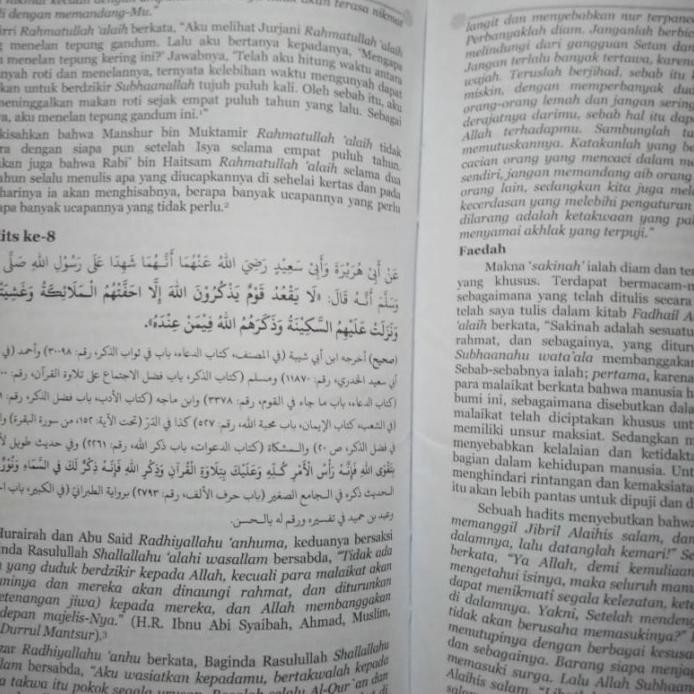 di dengan memandang-Mu."
irri Rahmatullah 'alaih berkata, "Aku melihat Jurjani Rahmatullah 'alaih
menelan tepung gandum. Lalu aku bertanya kepadanya, 'Mengapa
menelan tepung kering ini?' Jawabnya, 'Telah aku hitung waktu antara
nyah roti dan menelannya, ternyata kelebihan waktu mengunyah dapat
kan untuk berdzikir Subhaanallah tujuh puluh kali. Oleh sebab itu, aku
meninggalkan makan roti sejak empat puluh tahun yang lalu. Sebagai
ya, aku menelan tepung gandum ini.'"
kisahkan bahwa Manshur bin Muktamir Rahmatullah 'alaih tidak
ra dengan siapa pun setelah Isya selama empat puluh tahun.
kan juga bahwa Rabi' bin Haitsam Rahmatullah 'alaih selama dua
ahun selalu menulis apa yang diucapkannya di sehelai kertas dan pada
harinya ia akan menghisabnya, berapa banyak ucapannya yang perlu
apa banyak ucapannya yang tidak perlu.²
its ke-8
عَنْ أَبِيْ هُرَيْرَةَ وَأَبِيْ سَعِيْدٍ رَضِيَ اللهُ عَنْهُمَا أَنَّهُمَا شَهِدَا عَلَى رَسُوْلِ اللهِ صَلَّى
وَسَلَّمَ أَنَّهُ قَالَ: «لَا يَقْعُدُ قَوْمٌ يَذْكُرُوْنَ اللهَ إِلَّا حَفَّتْهُمُ الْمَلَائِكَةُ وَغَشِيَتْ
وَنَزَلَتْ عَلَيْهِمُ السَّكِيْنَةُ وَذَكَرَهُمُ اللهُ فِيْمَنْ عِنْدَهُ».
(صحيح) أخرجه ابن أبي شيبة (في المصنف، كتاب الدعاء، باب في ثواب الذكر، رقم: ٣٠٠٩٨) وأحمد (في
أبي سعيد الخدري، رقم: ١١٨٧٠) ومسلم (كتاب الذكر، باب فضل الاجتماع على تلاوة القرآن،
(كتاب الدعاء، باب ما جاء في القوم، رقم: ٣٣٧٨) وابن ماجه (كتاب الأدب، باب فضل الذكر، رقم:
(في الشعب، كتاب الإيمان، باب محبة الله، رقم: ٥٢٧) كذا في الدر (تحت الآية: ١٥٢، من سورة البقرة)
في فضل الذكر، ص ٢٠) والمشكاة (كتاب الدعوات، باب ذكر الله، رقم: ٢٢٦١) وفي حديث طويل
بِتَقْوَى اللهِ فَإِنَّهُ رَأْسُ الْأَمْرِ كُلِّهِ وَعَلَيْكَ بِتِلَاوَةِ الْقُرْآنِ وَذِكْرِ اللهِ فَإِنَّهُ ذِكْرٌ لَكَ فِي السَّمَاءِ وَنُوْرٌ
الحديث ذكره في الجامع الصغير (باب حرف الألف، رقم: ٢٧٩٣) برواية الطبراني (في الكبير، باب
وعبد بن حميد في تفسيره ورقم له بالحسن.
Hurairah dan Abu Said Radhiyallahu 'anhuma, keduanya bersaksi
nda Rasulullah Shallallahu 'alahi wasallam bersabda, "Tidak ada
yang duduk berdzikir kepada Allah, kecuali para malaikat akan
minya dan mereka akan dinaungi rahmat, dan diturunkan
etenangan jiwa) kepada mereka, dan Allah membanggakan
depan majelis-Nya." (H.R. Ibnu Abi Syaibah, Ahmad, Muslim,
Durrul Mantsur).³
zar Radhiyallahu 'anhu berkata, Baginda Rasulullah Shallallahu
lam bersabda, "Aku wasiatkan kepadamu, bertakwalah kepada
takwa itu pokok segala
langit dan menyebabkan nur terpanc
Perbanyaklah diam. Janganlah berbic
melindungi dari gangguan Setan dan
Jangan terlalu banyak tertawa, karen
wajah. Teruslah berjihad, sebab itu
miskin, dengan memperbanyak dud
orang-orang lemah dan jangan sering
derajatnya darimu, sebab hal itu dapa
Allah terhadapmu. Sambunglah ta
memutuskannya. Katakanlah yang be
cacian orang yang mencaci dalam me
sendiri, jangan memandang aib orang
orang lain, sedangkan kita juga mela
kecerdasan yang melebihi pengaturan
dilarang adalah ketakwaan yang pa
menyamai akhlak yang terpuji."
Faedah
Makna 'sakinah' ialah diam dan te
yang khusus. Terdapat bermacam-m
sebagaimana yang telah ditulis secara
telah saya tulis dalam kitab Fadhail A
'alaih berkata, "Sakinah adalah sesuatu
rahmat, dan sebagainya, yang dituru
Subhaanahu wata'ala membanggakan
Sebab-sebabnya ialah; pertama, karena
para malaikat berkata bahwa manusia h
bumi ini, sebagaimana disebutkan dala
malaikat telah diciptakan khusus unt
memiliki unsur maksiat. Sedangkan m
menyebabkan kelalaian dan ketidakta
bagian dalam kehidupan manusia. Unt
menghindari rintangan dan kemaksiatan
itu akan lebih pantas untuk dipuji dan di
Sebuah hadits menyebutkan bahwa
memanggil Jibril Alaihis salam, dan
dalamnya, lalu datanglah kemari!" Se
berkata, "Ya Allah, demi kemuliaan
mengetahui isinya, maka seluruh manu
dapat menikmati segala kelezatan, kete
di dalamnya. Yakni, Setelah mendeng
tidak akan berusaha memasukinya?"
menutupinya dengan berbagai kesusa
dan sebagainya. Barang siapa menja
memasuki surga. Lalu Allah Subhaan